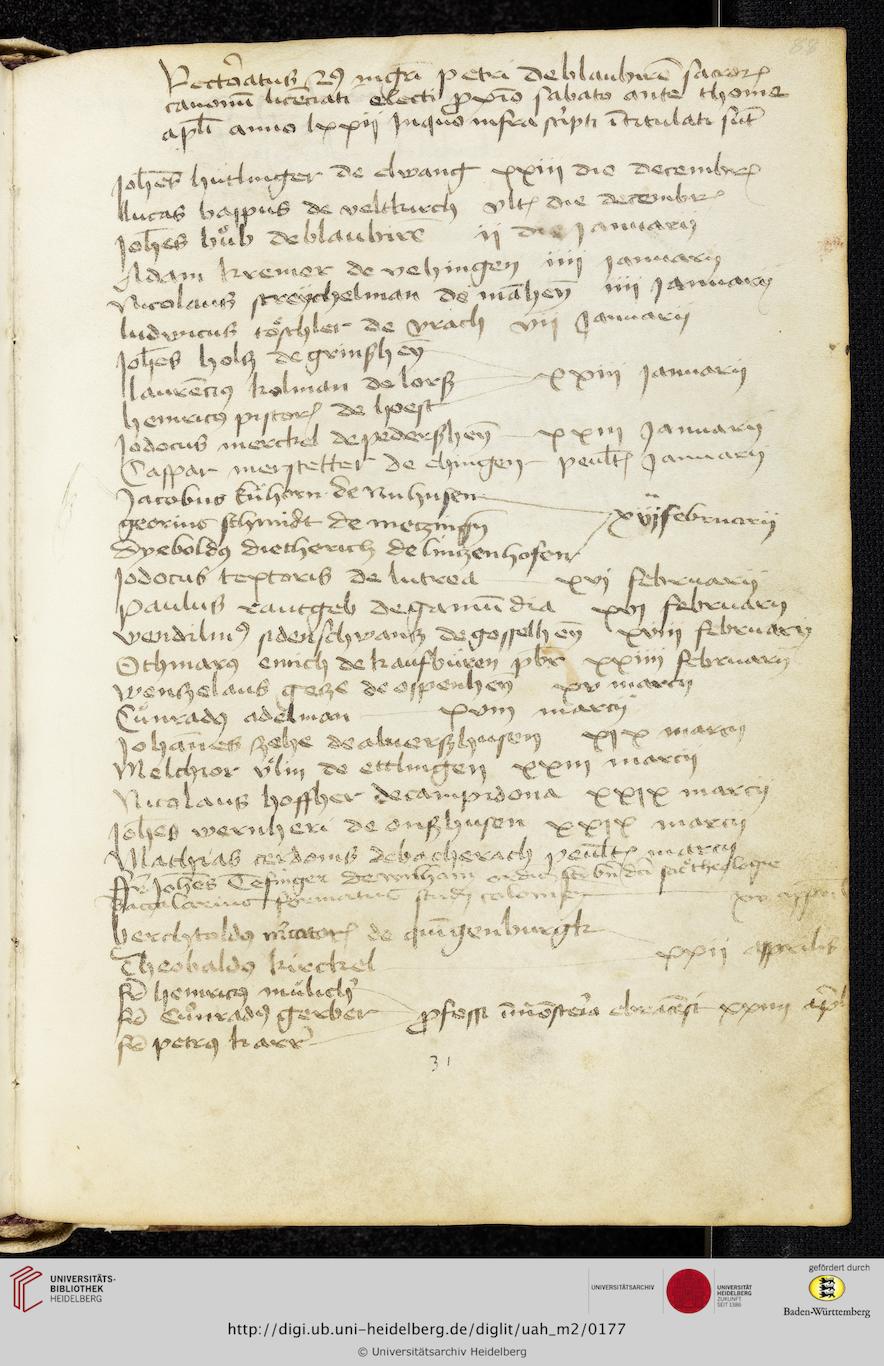 88
Rectoratus 2us mgri petri de blaubiren sacrorum
canonum licenciati electi proximo sabato ante thome
apli anno lxxii In quo infra scripti intitulati sunt
Johes hutlinger de elwang xxiii die decembris
Lucas de veltkirch ulta die decembris
Johes hůb de blaubiren ii die Januarii
Adam kremer de vehingen iiii Januarii
Nicolaus streychelman de manheym iiii Januarii
ludwicus töschler de Vrach vii Januarii
Johes holtz de grinsheym
laurencius kolman de lorss xxiii Januarii
henricus pistoris de hoest
Jodocus merckel de pedersheym xxiii Januarii
Caspar merstetter de ehingen penult Januarii
Jacobus kühorn de Nuhusen
georius schmidt de metzingen xvii februarii
Dyeboldus dietherich de lintzenhofen
Jodocus textoris de lutrea xvi februarii
Paulus rautgeb de gamundia xvi februarii
wendilinus sidenschwantz de gosselheym xviii februarii
Othmarus emich de kaufbüren pbr xxiiii februarii
wentzelaus getze de oppenheym xv marcii
Cünradus adelman xviii marcii
Johannes zehe de aluerszhusen xix marcii
Melchior vlin de ettlingen xxiii marcii
Nicolaus hoffher de campidona xxix marcii
Johes wernheri de onszhusen xxix marcii
Mathias cerdonis de bacherach penult marcii
ffr Johes Tefinger de ordinis sti bndcti sac theologie
baccalarius formatus studii coloniensis xv apprilis
berchtoldus mcatoris de quingenburgk
Theobaldus kirckel xxii apprilis
fr henricus mülich
fr Cünradus gerber pfessi monasterio ebracensi xxiiii april
fr petrus karrer
31
UNIVERSITÄTS-
BIBLIOTHEK
HEIDELBERG
UNIVERSITÄTSARCHIV
UNIVERSITÄT
HEIDELBERG
ZUKUNFT
SEIT 1386
gefördert durch
Baden-Württemberg
http://digi.ub.uni-heidelberg.de/diglit/uah_m2/0177
© Universitätsarchiv Heidelberg